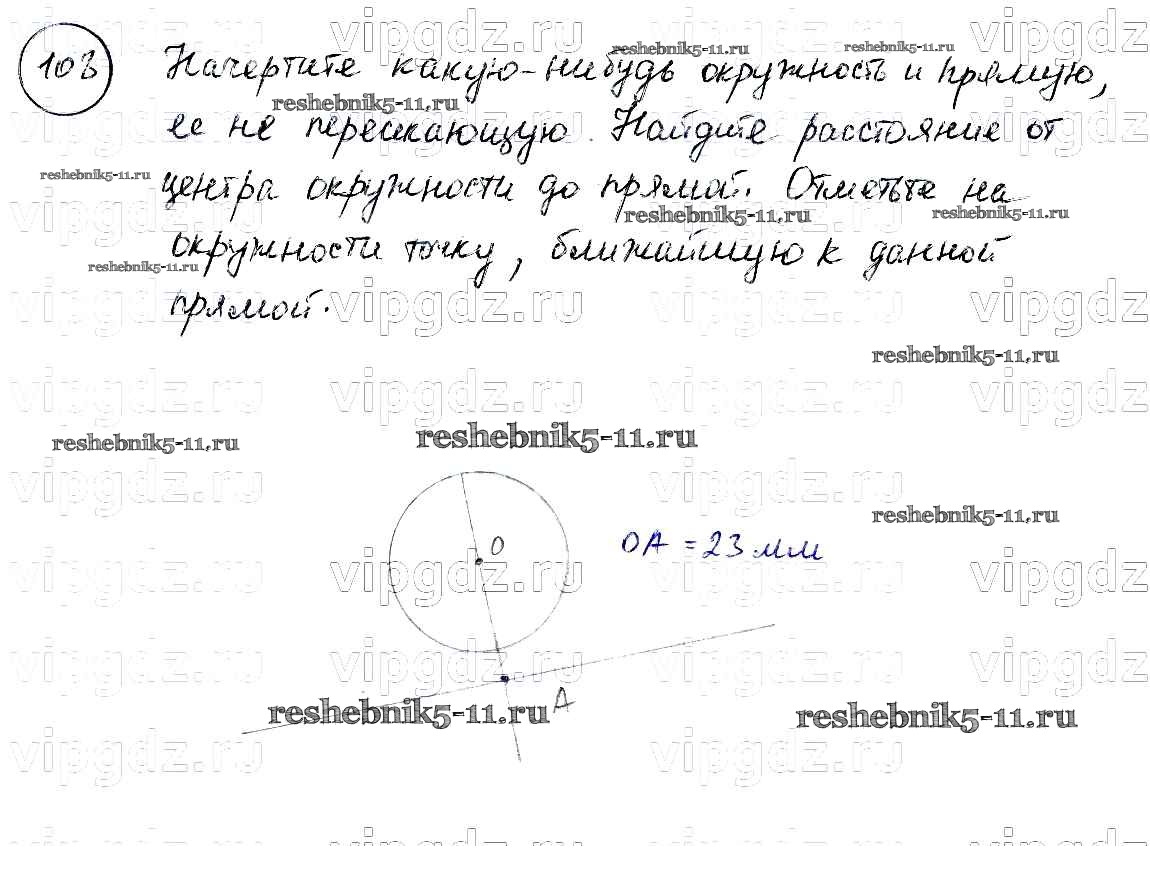 103 Начертите какую-нибудь окружность и прямую,
ее не пересекающую. Найдите расстояние от
центра окружности до прямой. Отметьте на
окружности точку, ближайшую к данной
прямой.
O
OA = 23 мм
A
vipgdz.ru
reshebnik5-11.ru